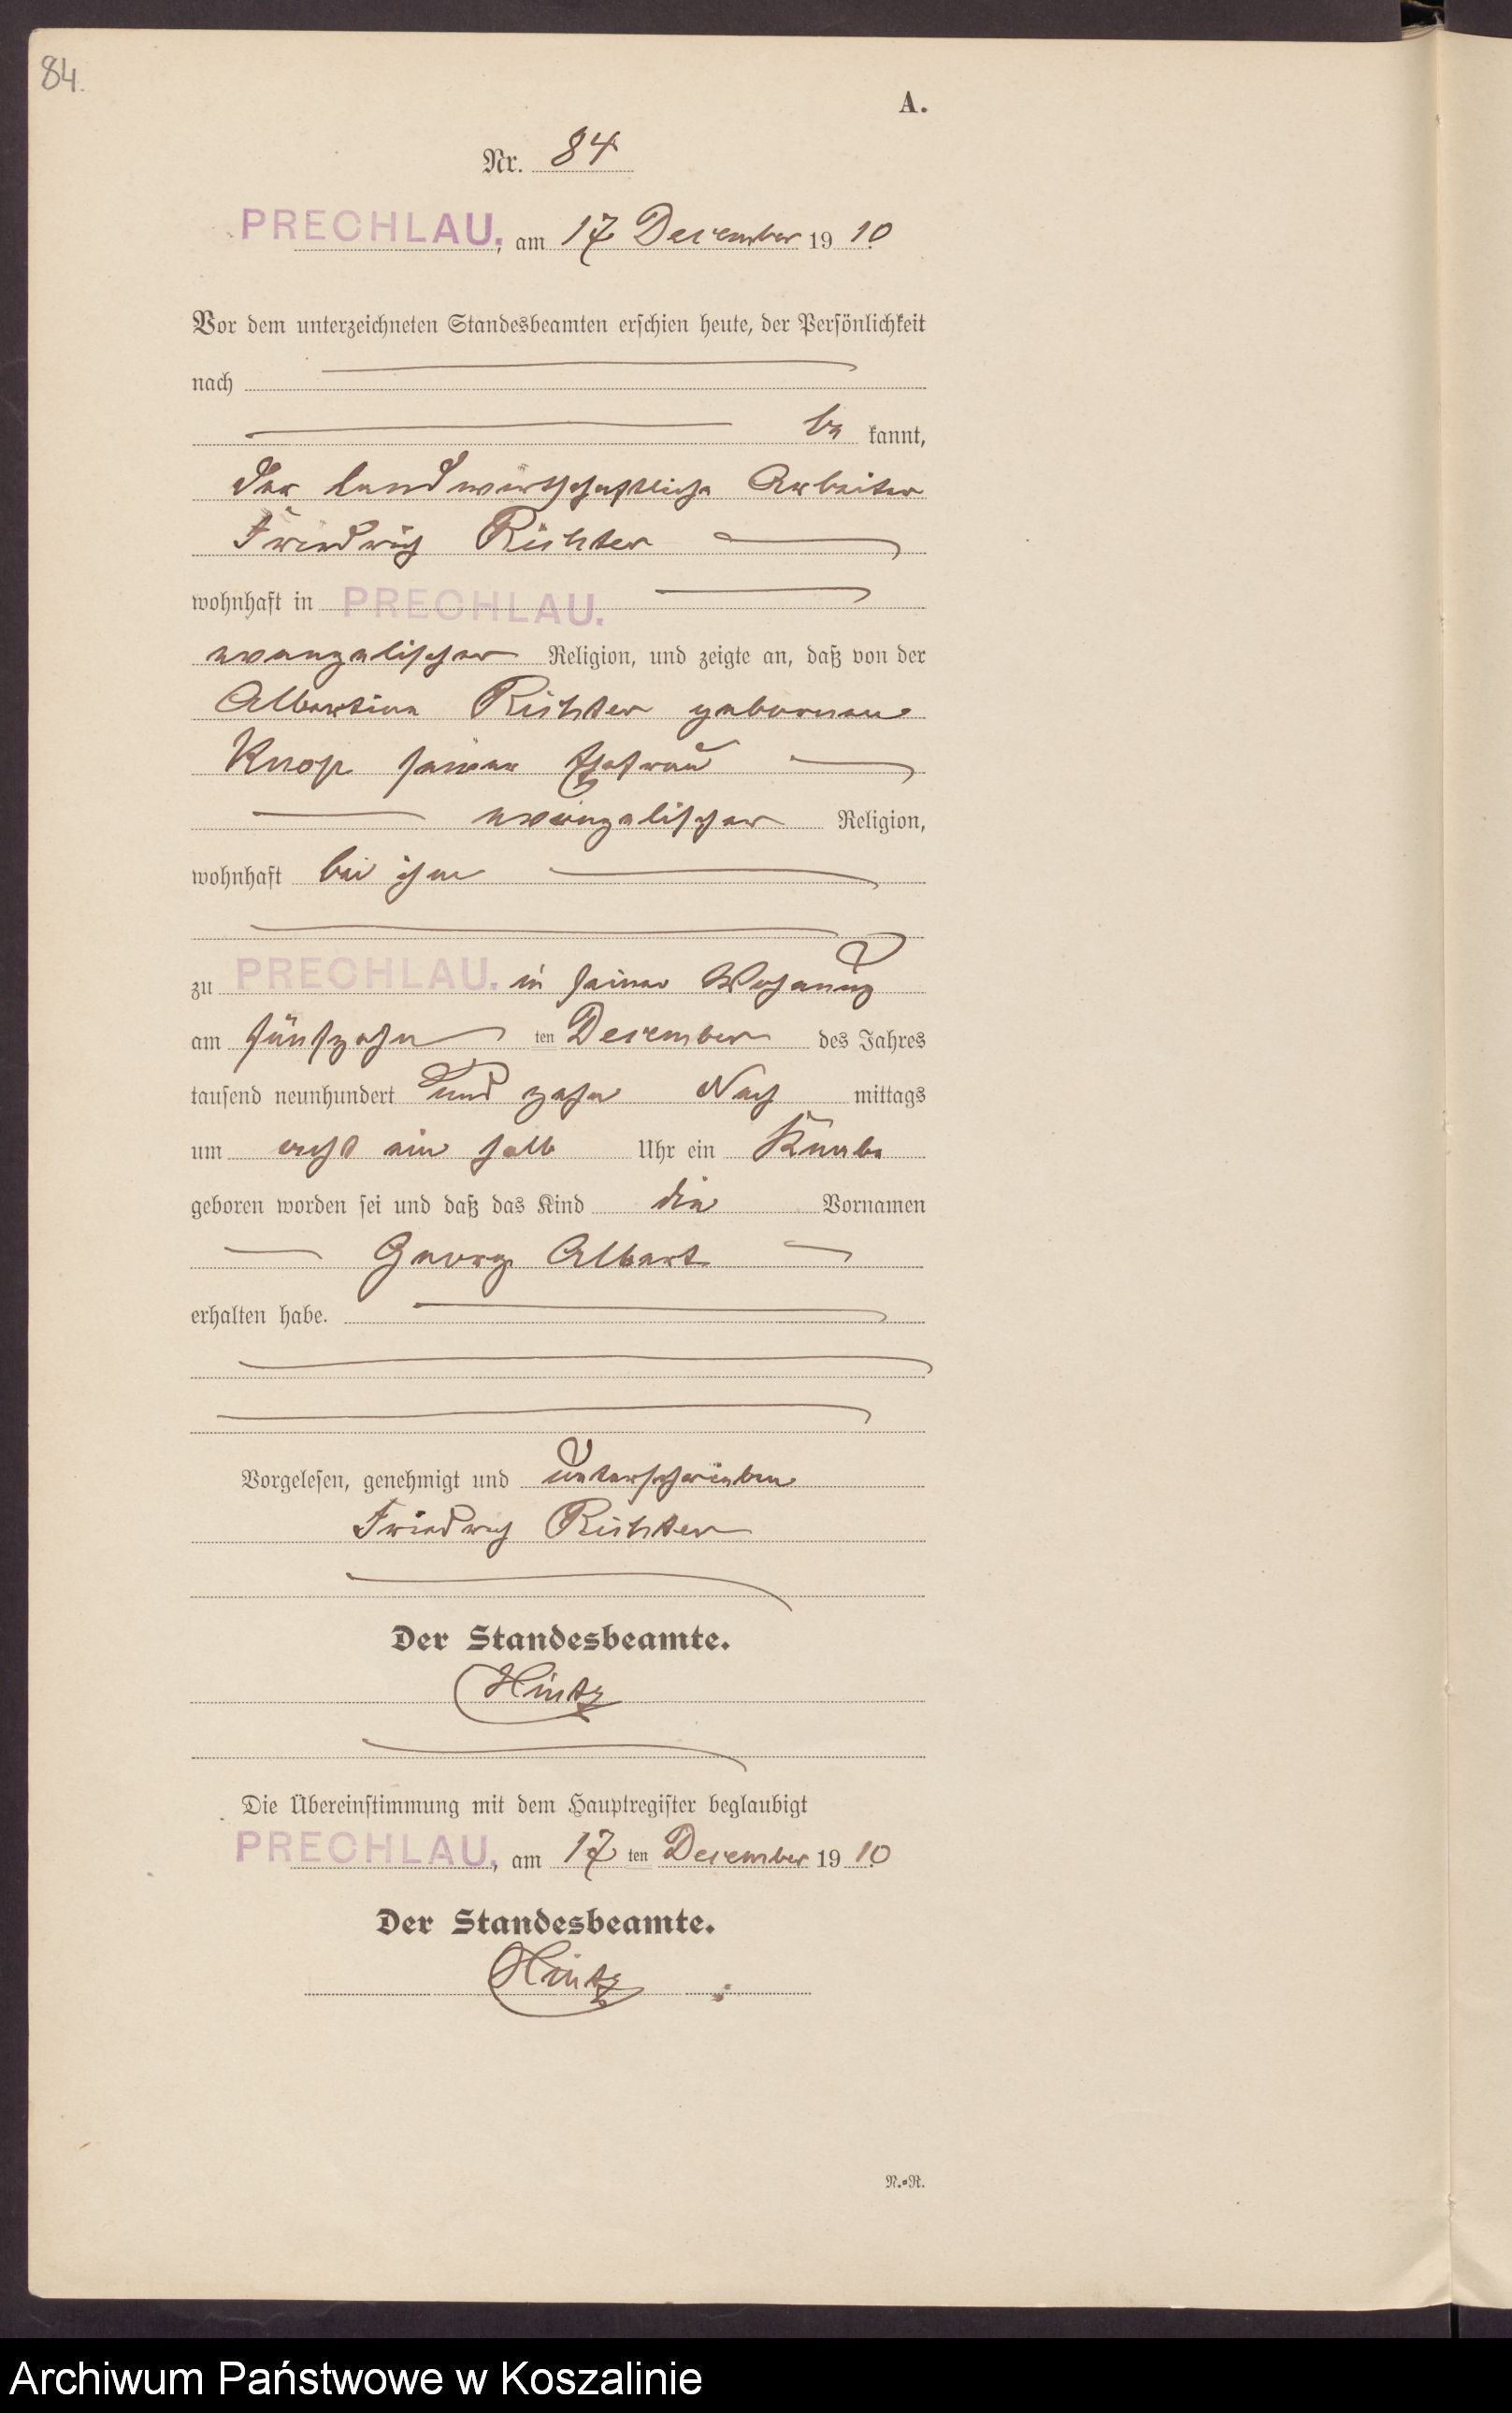 84.
A.
Nr. 84
PRECHLAU., am 17 December 1910
Vor dem unterzeichneten Standesbeamten erschien heute, der Persönlichkeit
nach
be kannt,
der landwirthschaftliche Arbeiter
Friedrich Richter
wohnhaft in PRECHLAU.
evangelischer Religion, und zeigte an, daß von der
Albertine Richter geborenen
Knop seiner Ehefrau
evangelischer Religion,
wohnhaft bei ihm
zu PRECHLAU. in seiner Wohnung
am fünfzehn ten December des Jahres
tausend neunhundert und zehn Nach mittags
um acht ein halb Uhr ein Knabe
geboren worden sei und daß das Kind die Vornamen
Georg Albert
erhalten habe.
Vorgelesen, genehmigt und unterschrieben
Friedrich Richter
Der Standesbeamte.
Hintz
Die Übereinstimmung mit dem Hauptregister beglaubigt
PRECHLAU., am 17 ten December 1910
Der Standesbeamte.
Hintz
N.=R.
Archiwum Państwowe w Koszalinie